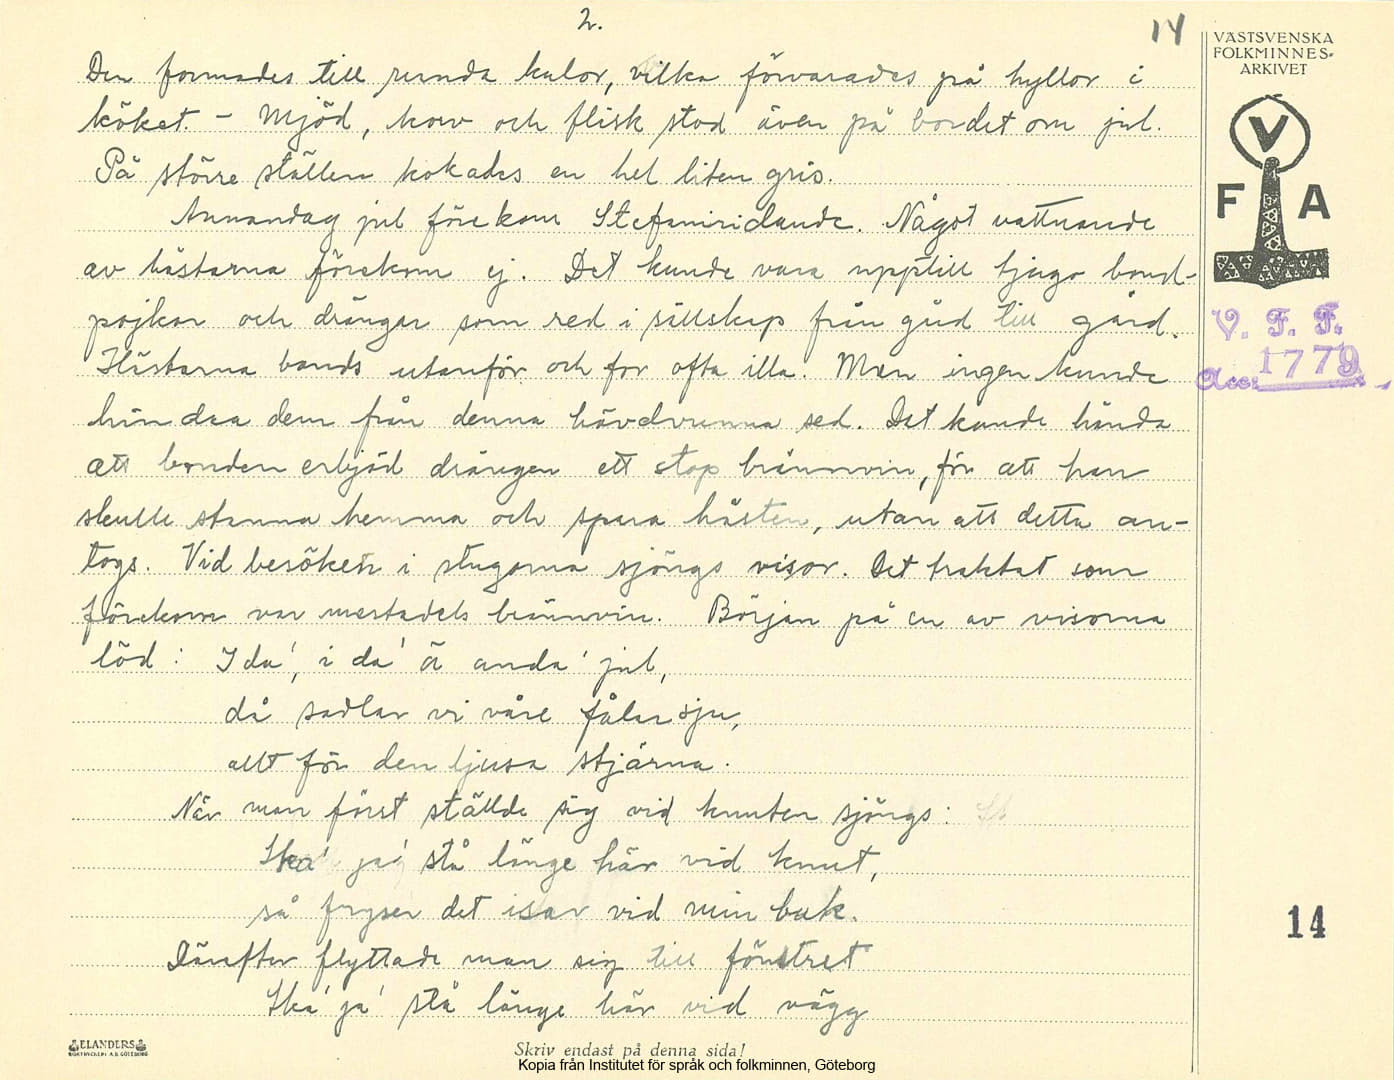 2.
14
VÄSTSVENSKA
FOLKMINNES-
ARKIVET
V
F A
V. F. F.
Acc. 1779
Den formades till runda kulor, vilka förvarades på hyllor i
köket. - Mjöd, korv och flisk stod även på bordet om jul.
På större ställen kokades en hel liten gris.
Annandag jul förekom Stefansridande. Något vattnande
av hästarna förekom ej. Det kunde vara upptill tjugo bond-
pojkar och drängar som red i sällskap från gård till gård.
Hästarna bands utanför och for ofta illa. Men ingen kunde
hindra dem från denna hävdvunna sed. Det kunde hända
att bonden erbjöd drängen ett stop brännvin, för att han
skulle stanna hemma och spara hästen, utan att detta an-
togs. Vid besöken i stugorna sjöngs visor. Det traktat som
förekom var mestadels brännvin. Början på en av visorna
löd: I da', i da' ä anda' jul,
då sadlar vi våre fålar sju,
allt för den ljusa stjärna.
När man först ställde sig vid knuten sjöngs:
Ska' ja' stå länge här vid knut,
så fryser det isar vid min buk.
Därefter flyttade man sig till fönstret
Ska' ja' stå länge här vid vägg
14
ELANDERS
BOKTRYCKERI A.B. GÖTEBORG
Skriv endast på denna sida!
Kopia från Institutet för språk och folkminnen, Göteborg